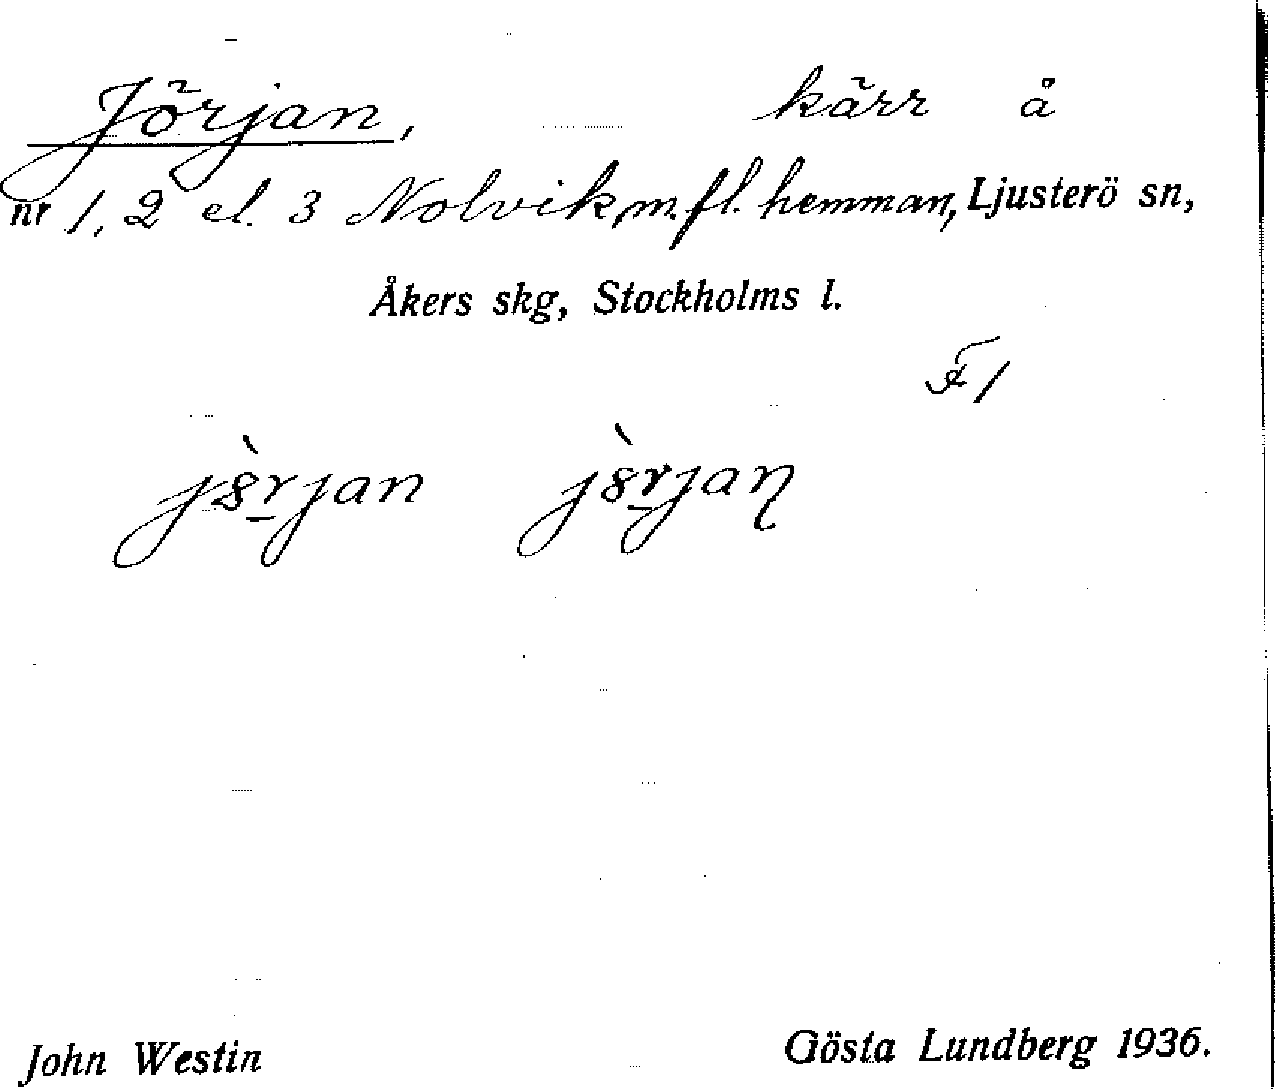 Jörjan, kärr å
nr 1, 2 el. 3 Nolvik m. fl. hemman, Ljusterö sn,
Åkers skg, Stockholms l.
John Westin Gösta Lundberg 1936.